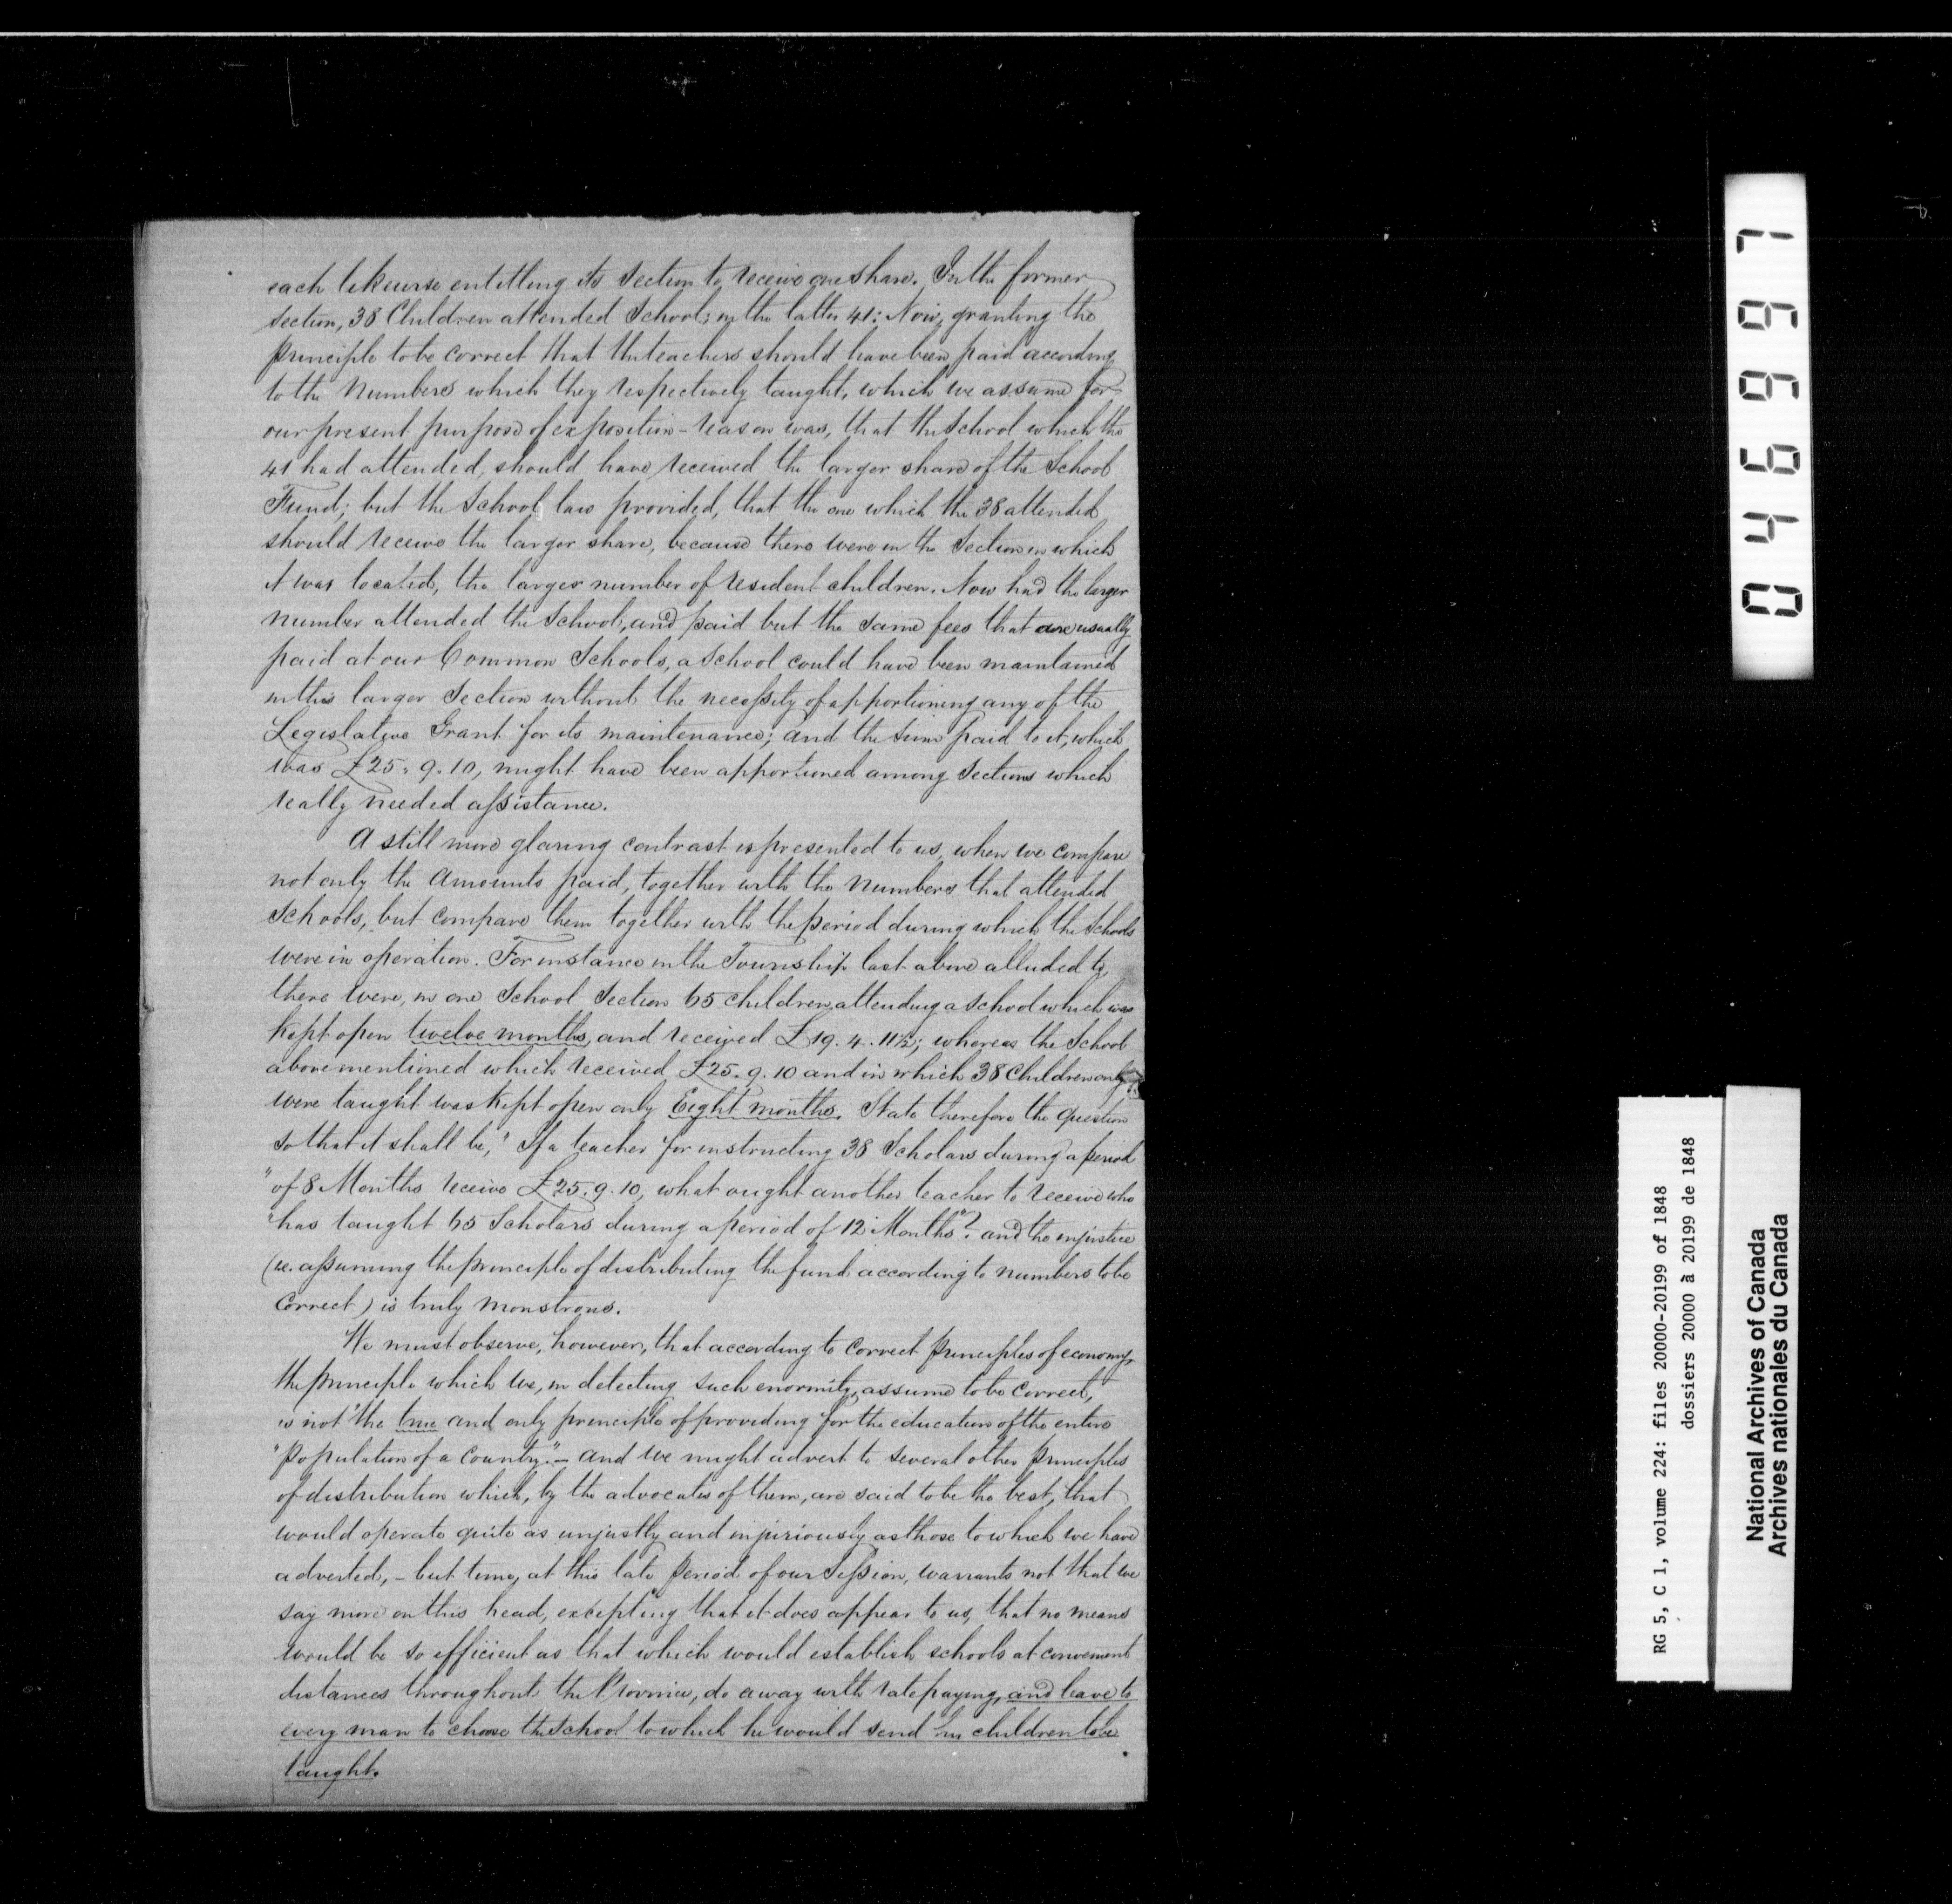 each likewise entitling its Section to receive one share. In the former
section, 38 Children attended School; in the latter 41: Now, granting the
principle to be correct that the teachers should have been paid according
to the Numbers which they respectively taught, which we assume for
our present purpose of exposition - reason was, that the School which the
41 had attended, should have received the larger share of the School
Fund; but the School law provided, that the one which the 38 attended
should receive the larger share, because there were in the Section in which
it was located, the larger number of resident children. Now had the larger
number attended the School, and paid but the same fees that are usually
paid at our Common Schools, a School could have been maintained
in this larger Section without the necessity of apportioning any of the
Legislative Grant for its maintenance; and the sum paid to it, which
was £25. 9. 10, might have been apportioned among Sections which
really needed assistance.
A still more glaring contrast is presented to us, when we compare
not only the Amounts paid, together with the Numbers that attended
Schools, but compare them together with the period during which the Schools
were in operation. For instance in the Township last above alluded to,
there were, in one School Section 65 children attending a School which was
kept open twelve months, and received £19. 4. 11½; whereas the School
above mentioned which received £25. 9. 10 and in which 38 Children only
were taught was kept open only Eight months. State therefore the question
so that it shall be, "If a teacher for instructing 38 Scholars during a period
"of 8 Months receive £25. 9. 10, what ought another teacher to receive who
"has taught 65 Scholars during a period of 12 Months"? and the injustice
(ie. assuming the principle of distributing the fund according to numbers to be
Correct) is truly monstrous.
We must observe, however, that according to correct principles of economy,
the principle which we, in detecting such enormity, assume to be correct,
is not "the true and only principle of providing for the education of the entire
"population of a Country." - and we might advert to several other principles
of distribution which, by the advocates of them, are said to be the best, that
would operate quite as unjustly and injuriously as those to which we have
adverted, - but time, at this late period of our Session, warrants not that we
say more on this head, excepting that it does appear to us, that no means
would be so efficient as that which would establish schools at convenient
distances throughout the Province, do away with rate paying, and leave to
every man to choose the School to which he would send his children to be
taught.
046997
RG 5, C 1, volume 224: files 20000-20199 of 1848
dossiers 20000 à 20199 de 1848
National Archives of Canada
Archives nationales du Canada